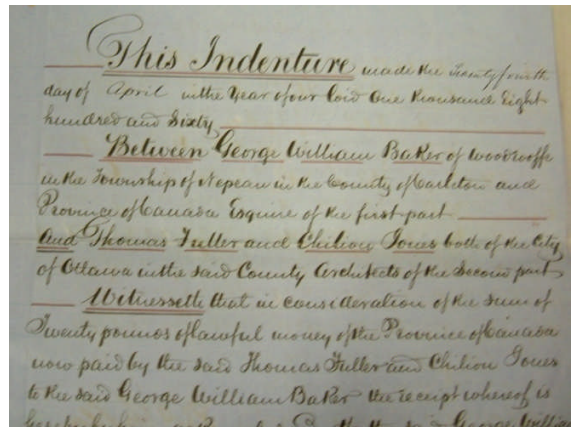 This Indenture made the Twenty fourth
day of April in the Year of our Lord One thousand Eight
hundred and Sixty
Between George William Baker of Woodroffe
in the Township of Nepean in the County of Carleton and
Province of Canada Esquire of the first part
And Thomas Fuller and Chilion Jones both of the City
of Ottawa in the said County Architects of the Second part
Witnesseth that in consideration of the sum of
Twenty pounds of lawful money of the Province of Canada
now paid by the said Thomas Fuller and Chilion Jones
to the said George William Baker the receipt whereof is
George William